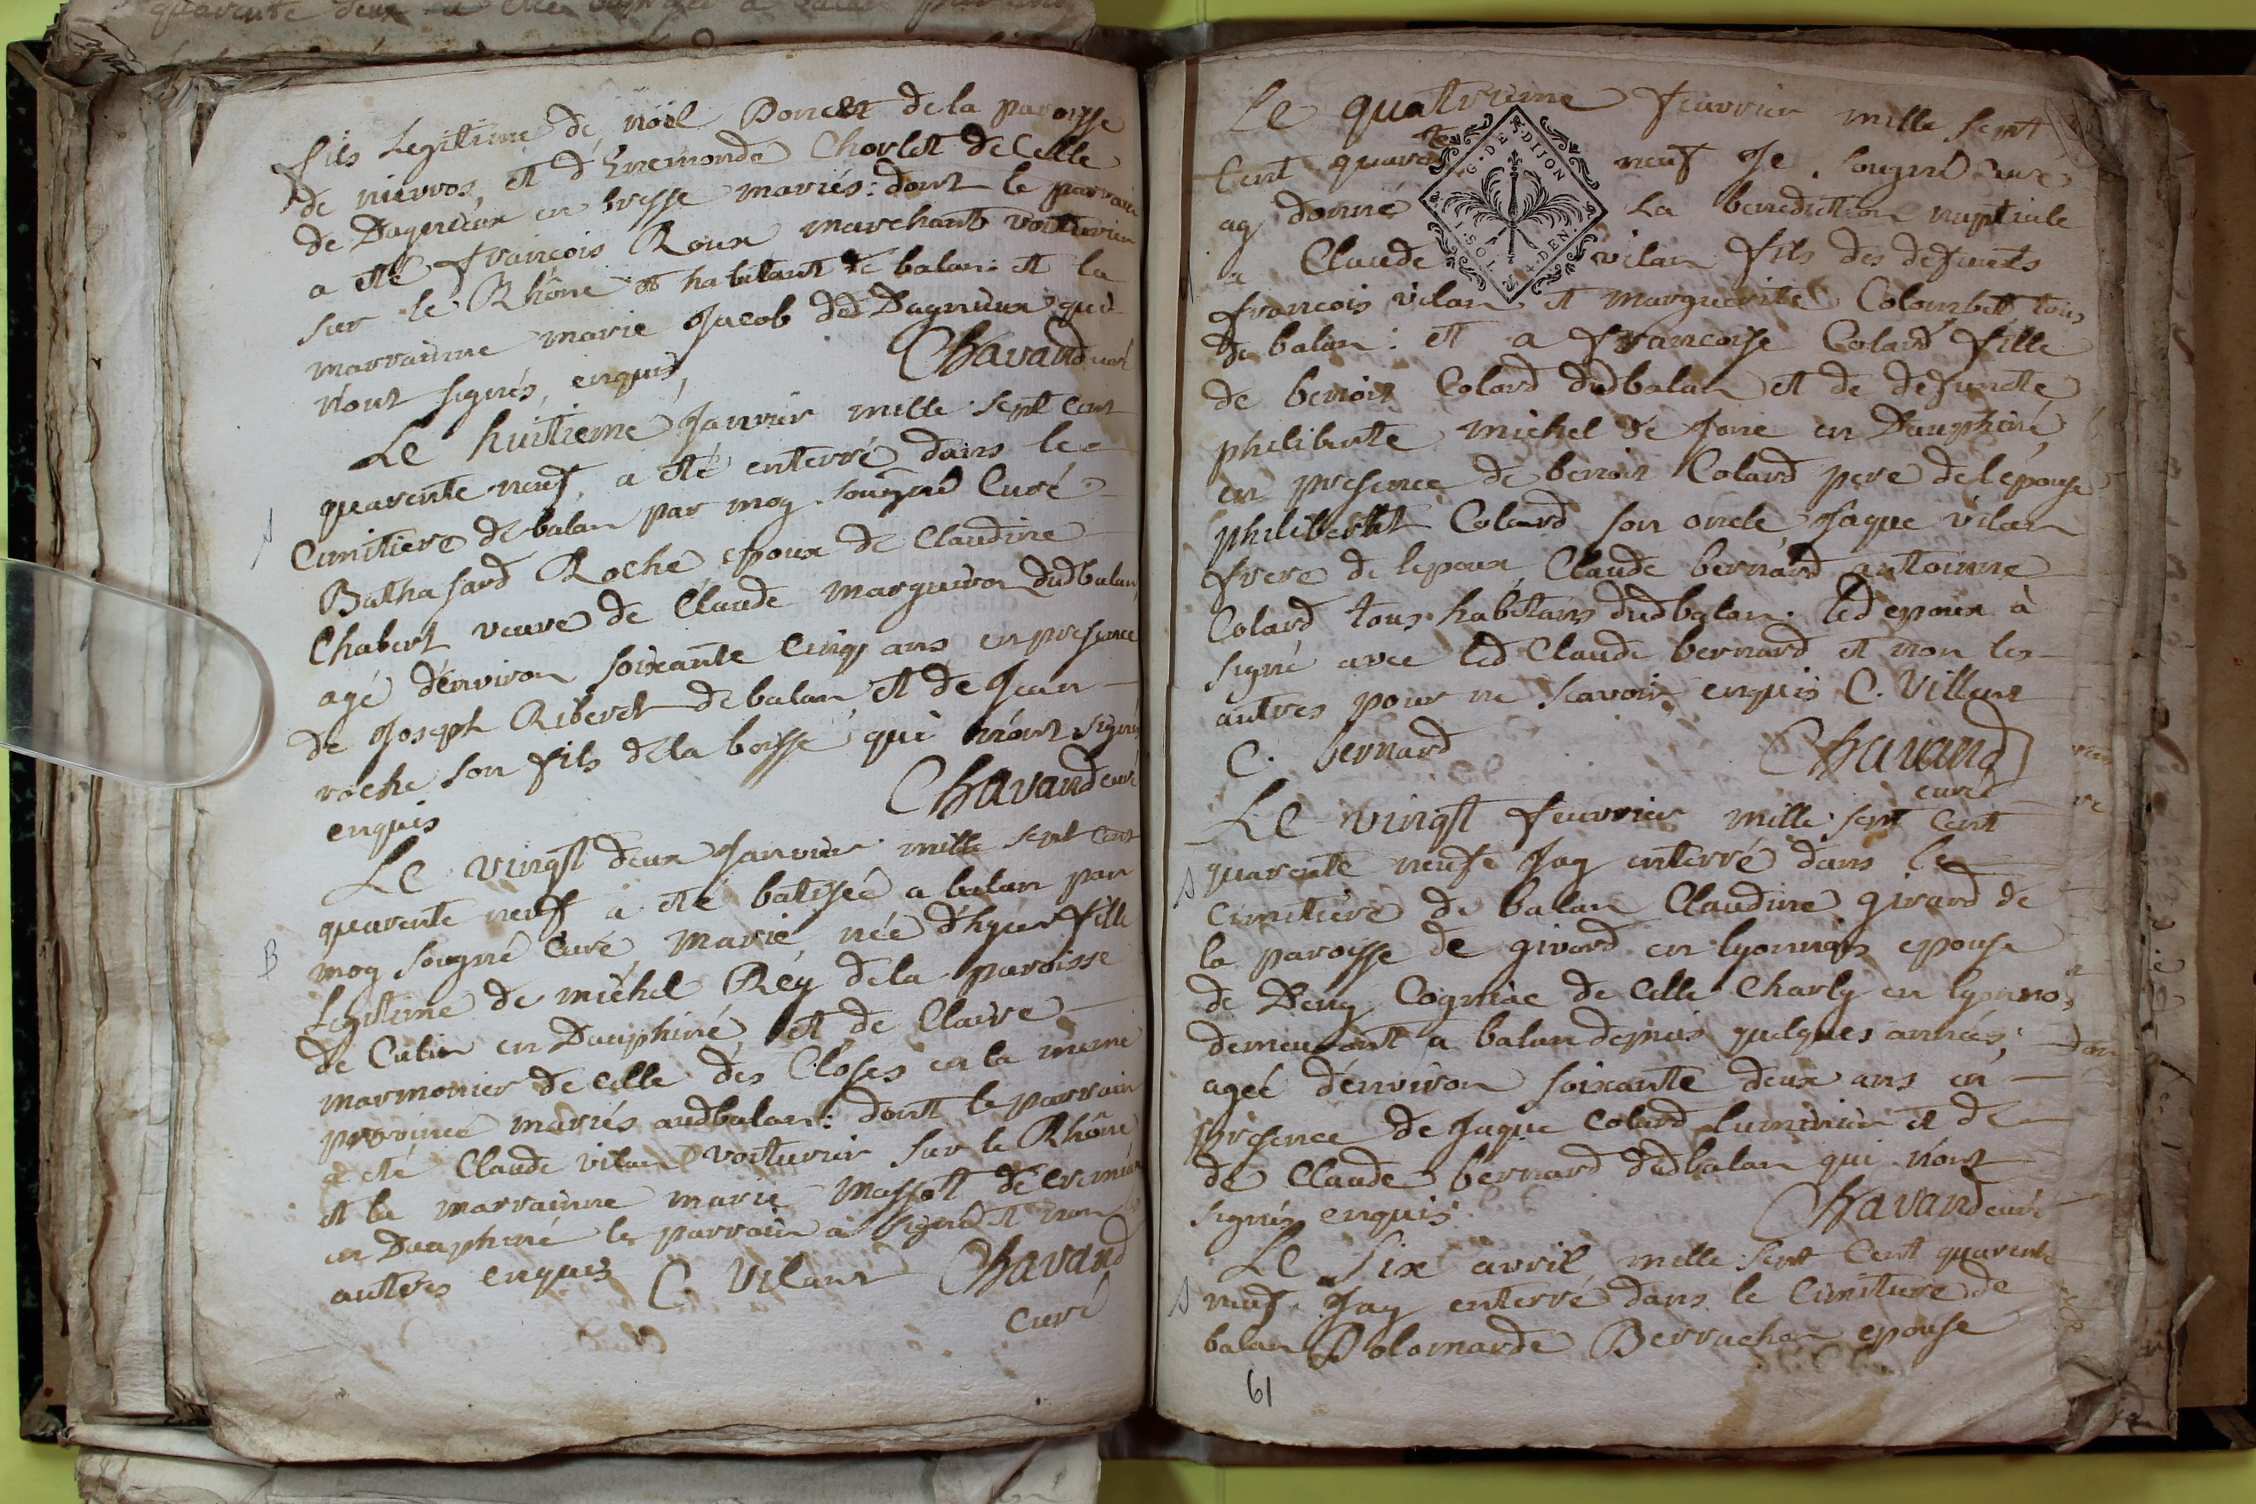 fils Legitime de nöel Poncet de la paroisse
de nievros, et d'Enemonde Chorlet de Celle
de Dagnieux en bresse mariés: dont le parrain
a eté françois Roux marchant voiturier
sur le Rhône et habitant de balan: et la
marrainne marie Jacob dud Dagnieux qui
n'ont signés, enquis, Chavand curé
Le huitieme Janvier mille sept cent
quarente neuf, a été enterré dans le
Cimitiere de balan par moy sougné Curé
Balthasard Roche epoux de Claudine
Chabert veuve de Claude marguiron dudbalan,
agé d'environ soixante Cinq ans en presence
de Joseph Riberet de balan et de Jean
roche son fils de la boisse qui n'ont signés
enquis Chavand curé
Le vingt deux Janvier mille sept cent
quarente neuf a eté batisée a balan par
B moy sougné Curé, marie, née d'hyer fille
Legitime de michel Rey de la paroisse
de Culin en Dauphiné, et de Claire
marmonier de Celle des Closes en la meme
province mariés audbalan: dont le parrain
a eté Claude vilan voiturier sur le Rhône
et la marrainne marie Massot de Cremieu
en Dauphiné le parrain a signé et non les
autres enquis C. Vilant Chavand
curé
Le quatrieme feuvrier mille sept
Cent quarente neuf Je sougné Curé
ay donné La benediction nuptiale
a Claude vilan fils des defuncts
françois vilan et marguerite Colombet, tous
de balan: et a françoise Colard fille
de benoit Colard dudbalan et de defuncte
philiberte michel de Jone en Dauphiné,
en presence de benoit Colard pere de l'épouse
philibert Colard son oncle, Jaque vilan
frere de lepoux, Claude bernard antoinne
Colard tous habitans dudbalan. led epoux à
signé avec led Claude bernard et non les
autres pour ne scavoir enquis C. Villant
C. bernard Chavand
curé
Le vingt feuvrier mille sept Cent
quarente neufe Jay enterré dans le
Cimitiere de balan Claudine girard de
la paroisse de givord en lyonnois epouse
de Deny Cogniac de Celle Charly en lyonno,
demeurant a balan depuis quelques années,
agée d'environ soixante deux ans en
presence de Jaque Colard luminier et de
de Claude bernard dudbalan qui n'ont
signés enquis Chavand curé
Le Six avril mille sept Cent quarente
neuf Jay enterré dans le Cimitiere de
balan Polomarde Berrachon epouse
61
G. DE DIJON